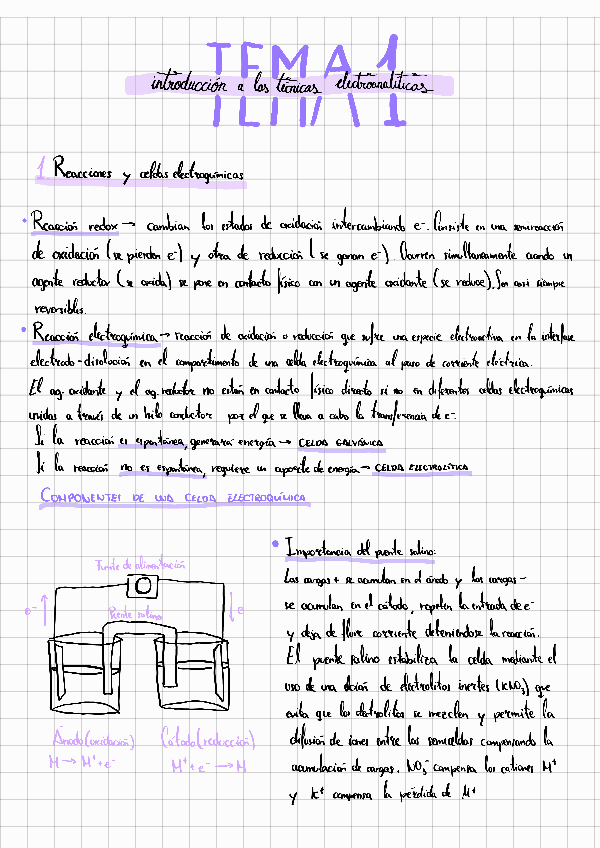 TEMA 1
introducción a las técnicas electroanalíticas
1 Reacciones y celdas electroquímicas
• Reacción redox → cambian los estados de oxidación intercambiando e⁻. Consiste en una semireacción
de oxidación (se pierden e⁻) y otra de reducción (se ganan e⁻). Ocurren simultaneamente cuando un
agente reductor (se oxida) se pone en contacto físico con un agente oxidante (se reduce). Son casi siempre
reversibles.
• Reacción electroquímica → reacción de oxidación o reducción que sufre una especie electroactiva en la interfase
electrodo-disolución en el compartimento de una celda electroquímica al paso de corriente eléctrica.
El ag. oxidante y el ag. reductor no están en contacto físico directo si no en diferentes celdas electroquímicas
unidas a través de un hilo conductor por el que se lleva a cabo la transferencia de e⁻
Si la reacción es espontánea, generará energía → CELDA GALVÁNICA
Si la reacción no es espontánea, requiere un aporte de energía → CELDA ELECTROLÍTICA
COMPONENTES DE UNA CELDA ELECTROQUÍMICA
Fuente de alimentación
e⁻
Puente salino
e
Ánodo (oxidación)
M → M⁺ + e⁻
Cátodo (reducción)
M⁺ + e⁻ → M
• Importancia del puente salino:
Las cargas + se acumulan en el ánodo y las cargas -
se acumulan en el cátodo, repelen la entrada de e⁻
y deja de fluir corriente deteniéndose la reacción.
El puente salino estabiliza la celda mediante el
uso de una disión de electrolitos inertes (KNO₃) que
evita que los electrolitos se mezclen y permite la
difusión de iones entre las semiceldas compensando la
acumulación de cargas. NO₃⁻ compensa los cationes M⁺
y K⁺ compensa la pérdida de M⁺